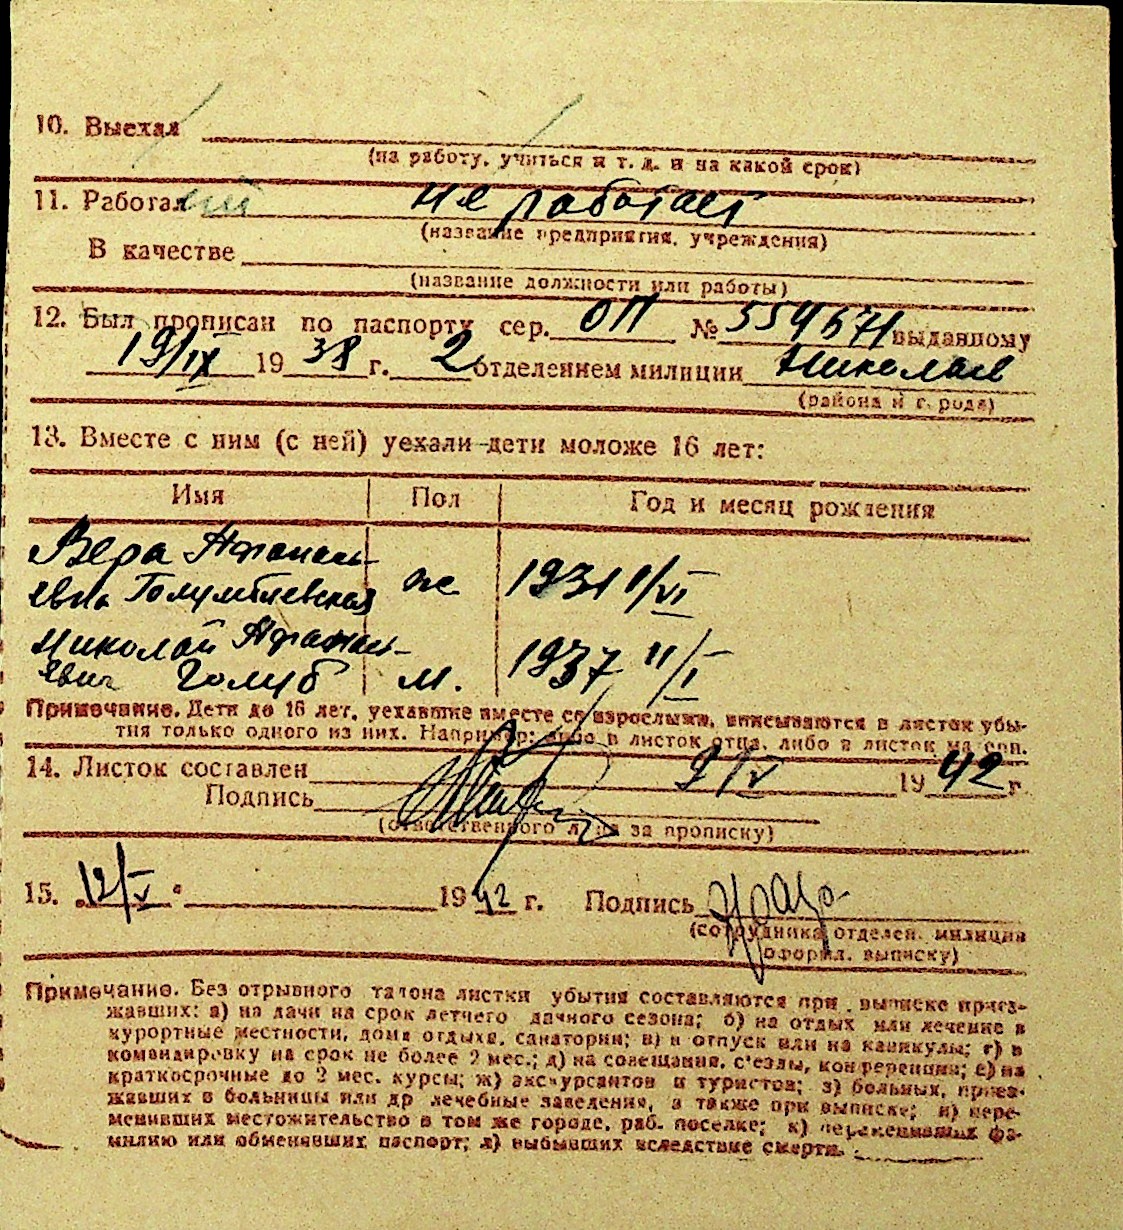 10. Выехал
(на работу, учиться и т. д. и на какой срок)
11. Работал не работает
(название предприятия, учреждения)
В качестве
(название должности или работы)
12. Был прописан по паспорту сер. ОП № 554671 выданному
19/IX 1938 г. 2 отделением милиции Николаев
(района и города)
13. Вместе с ним (с ней) уехали дети моложе 16 лет:
Имя Пол Год и месяц рождения
Вера Афанась-
евна
ж 1931
Николай Афанась-
евич Голуб м. 1937 11/I
Примечание. Дети до 16 лет, уехавшие вместе со взрослыми, вписываются в листок убы-
тия только одного из них. Например: либо в листок отца, либо в листок матери.
14. Листок составлен 9/V 1942 г.
Подпись
(ответственного лица за прописку)
15. 12/V 1942 г. Подпись
(сотрудника отделен. милиции
оформл. выписку)
Примечание. Без отрывного талона листки убытия составляются при выписке приез-
жавших: а) на дачи на срок летнего дачного сезона; б) на отдых или лечение в
курортные местности, дома отдыха, санатории; в) в отпуск или на каникулы; г) в
командировку на срок не более 2 мес.; д) на совещания, с'езды, конференции; е) на
краткосрочные до 2 мес. курсы; ж) экскурсантов и туристов; з) больных, приез-
жавших в больницы или др лечебные заведения, а также при выписке; и) пере-
менивших местожительство в том же городе, раб. поселке; к) переменивших фа-
милию или обменявших паспорт; л) выбывших вследствие смерти.